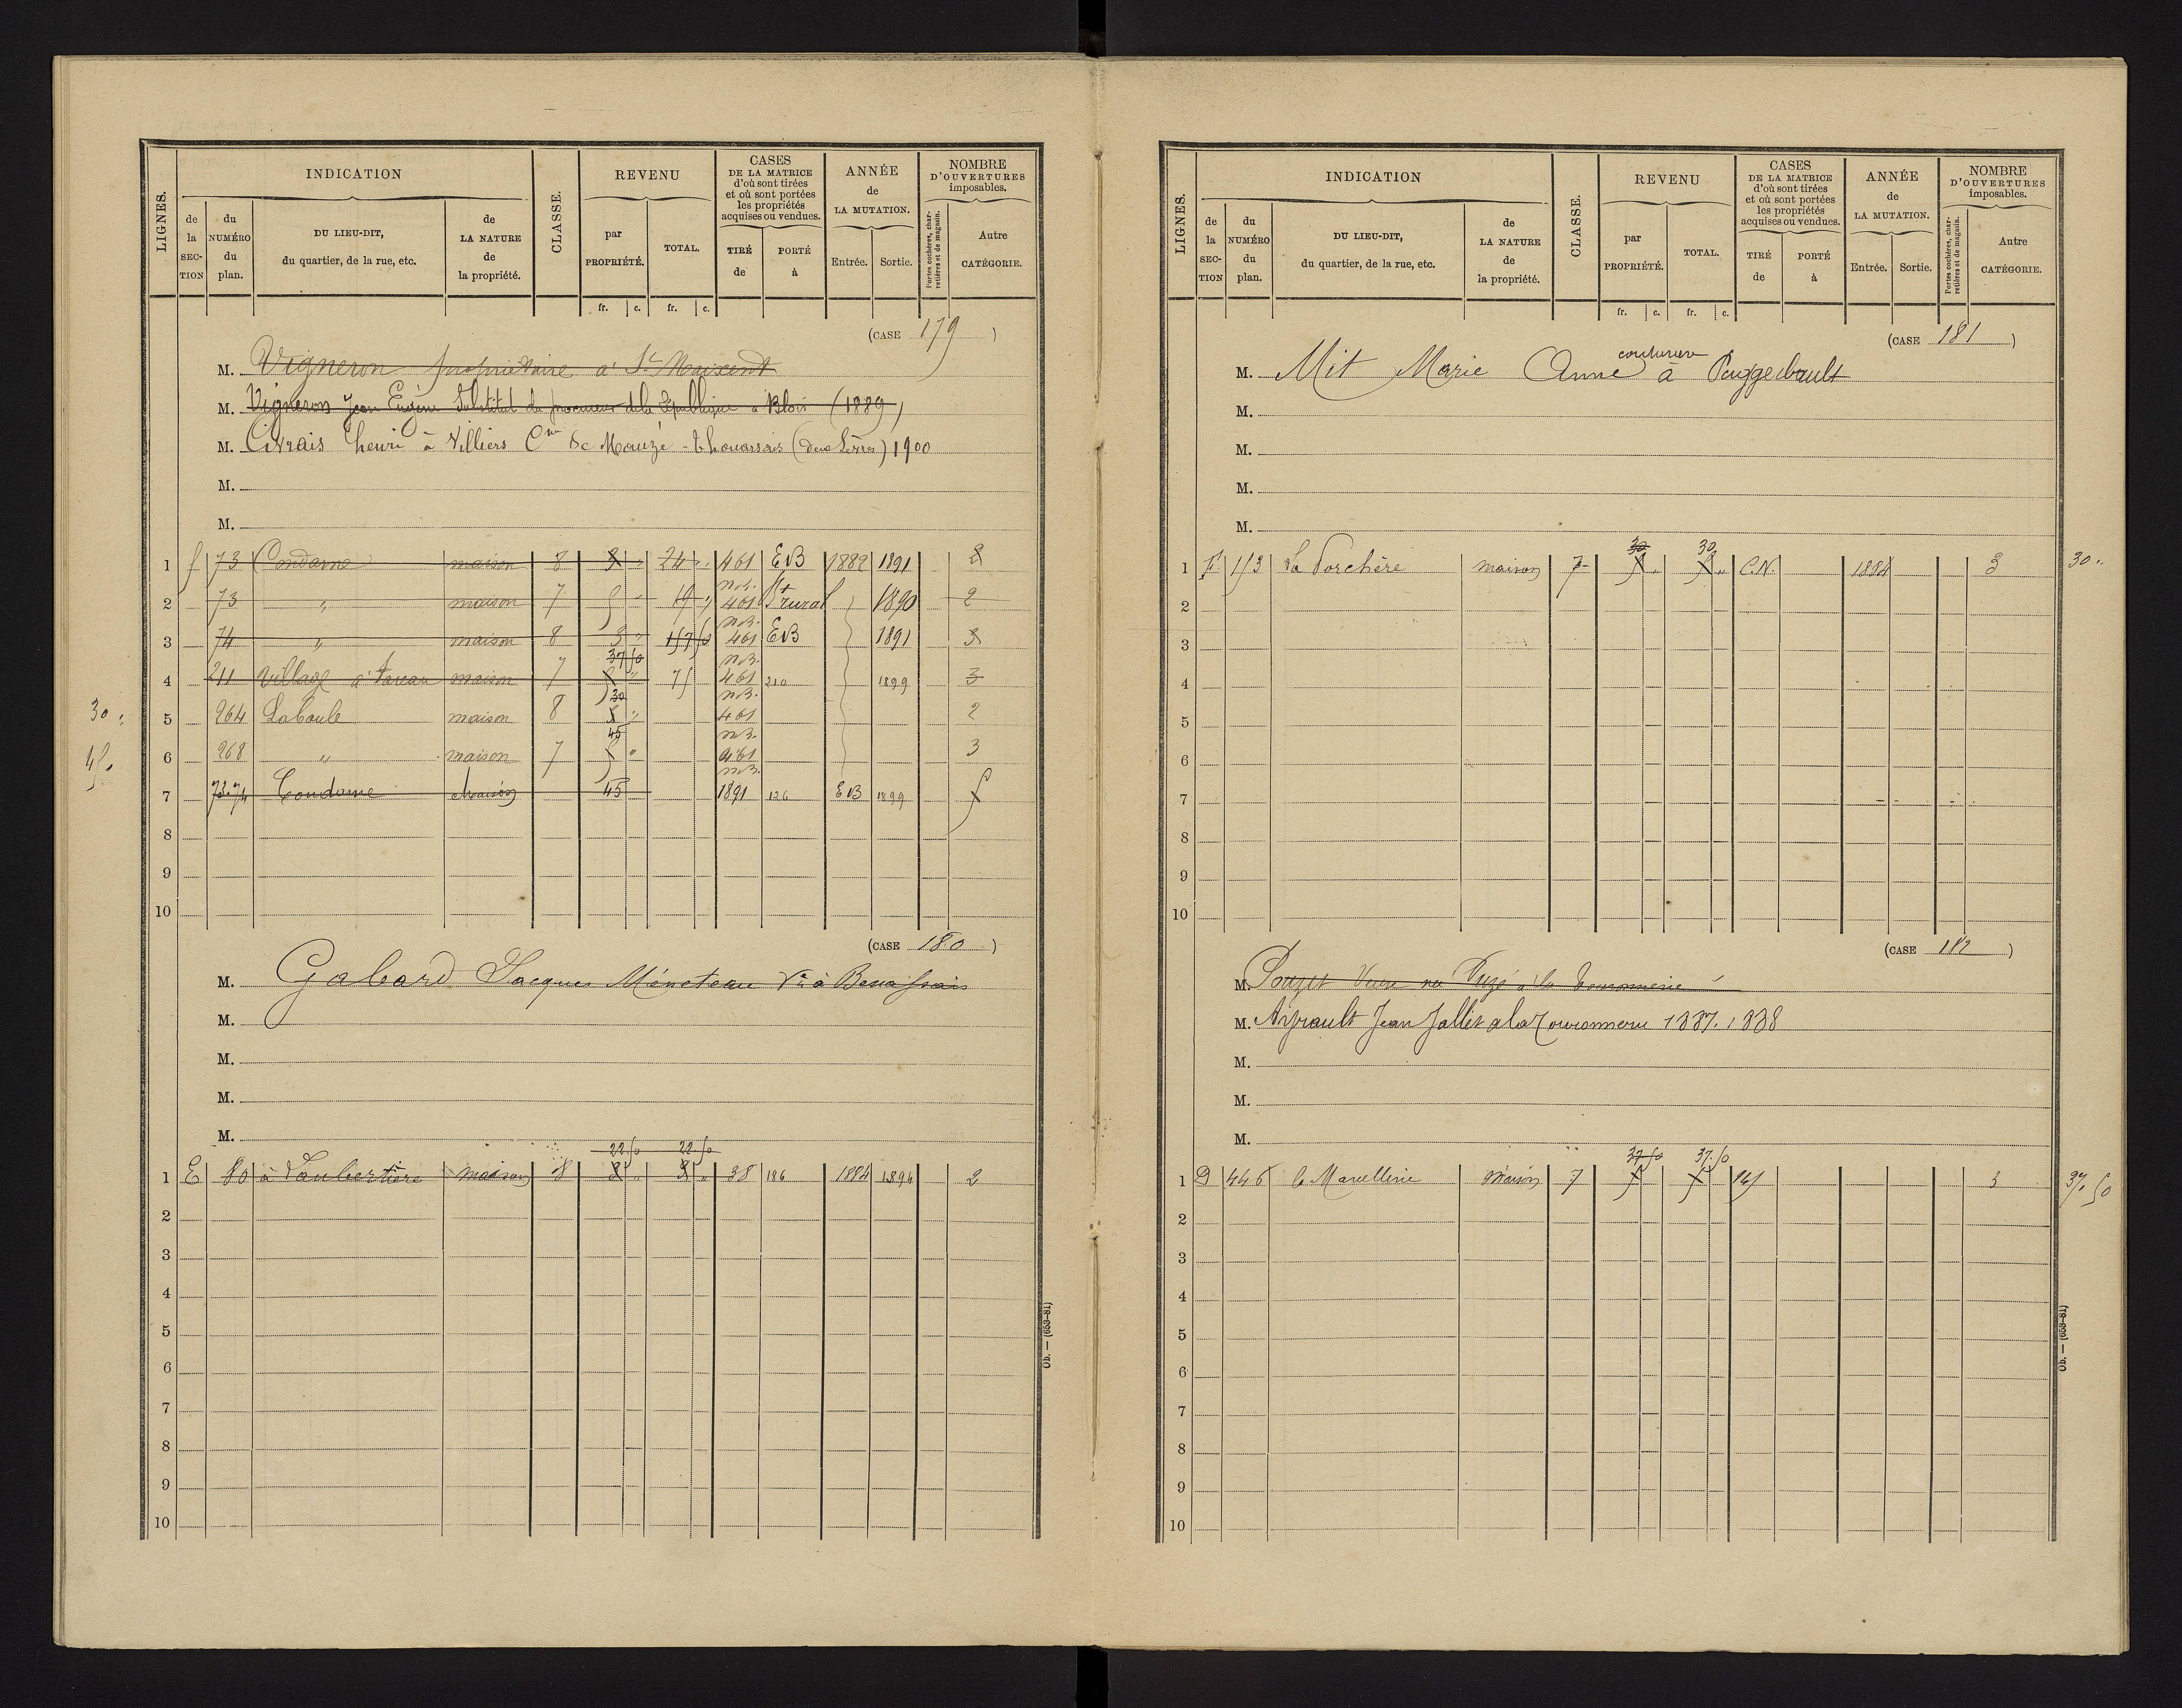 LIGNES. INDICATION CLASSE. REVENU CASES DE LA MATRICE d'où sont tirées et où sont portées les propriétés acquises ou vendues. ANNÉE de LA MUTATION. NOMBRE D'OUVERTURES imposables.
de la SECTION du NUMÉRO du plan. DU LIEU-DIT, du quartier, de la rue, etc. de LA NATURE de la propriété. par PROPRIÉTÉ. TOTAL. TIRÉ de PORTÉ à Entrée. Sortie. Portes cochères, charretières et de magasin. Autre CATÉGORIE.
fr. c. fr. c.
(CASE 179)
M. Vigneron propriétaire à St Maixent
M. Vigneron Jean Eugène Substitut du procureur de la République à Blois (1889)
M. Civrais henri à Villiers Cne de Mauzé-thouarsais (deux Sèvres) 1900
M.
M.
1 f 73 Condame maison 8 8 " 24 " 461 EB 1882 1891 2
2 73 " maison 7 5 " 19 " n.B. 461 Bt rural 1890 2
3 74 " maison 8 8 " 157 50 n.B. 461 EB 1891 3
4 211 Village à maison 7 37 50 5 " 75 n.B. 461 210 1899 3
30 " 5 264 Laboule maison 8 30 8 " n.B. 461 2
45 " 6 268 " maison 7 45 5 " n.B. 461 3
7 73.74 Condame Maison 45 n.B. 1891 126 EB 1899 5
8
9
10
(CASE 180)
M. Gabard Jacques Méneteau Ve à Benassais
M.
M.
M.
M.
22.50 22.50
1 E 80 à Laubertière maison 8 8 " 8 " 38 186 1884 1896 2
2
3
4
5
6
7
8
9
10
Ob. — (653-81)
LIGNES. INDICATION CLASSE. REVENU CASES DE LA MATRICE d'où sont tirées et où sont portées les propriétés acquises ou vendues. ANNÉE de LA MUTATION. NOMBRE D'OUVERTURES imposables.
de la SECTION du NUMÉRO du plan. DU LIEU-DIT, du quartier, de la rue, etc. de LA NATURE de la propriété. par PROPRIÉTÉ. TOTAL. TIRÉ de PORTÉ à Entrée. Sortie. Portes cochères, charretières et de magasin. Autre CATÉGORIE.
fr. c. fr. c.
(CASE 181)
couturière
M. Mit Marie Anne à
M.
M.
M.
M.
30 30
1 F 153 La Porchère maison 7 5 " 5 " C.N. 1884 3 30 "
2
3
4
5
6
7
8
9
10
(CASE 182)
M. Pouzet Veuve née à la
M. Ayrault Jean Jallet à la 1887. 1888
M.
M.
M.
37 50 37.50
1 D 446 la Marcellerie Maison 7 5 5 165 3 37.50
2
3
4
5
6
7
8
9
10
Ob. — (653-81)